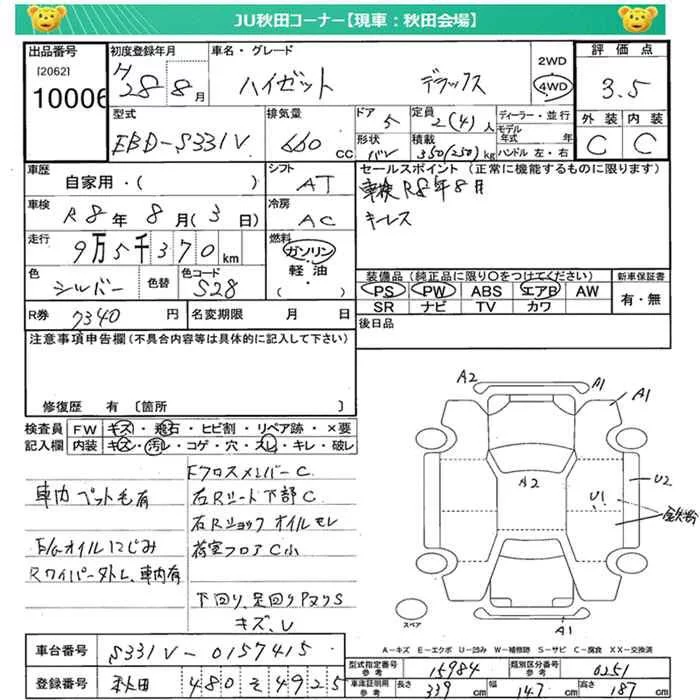 JU秋田コーナー【現車：秋田会場】
出品番号 初度登録年月 車名・グレード 2WD 評価点
[2062] H28 8月 ハイゼット デラックス 4WD 3.5
10006
型式 排気量 ドア 定員 ディーラー・並行 外装 内装
EBD-S331V 660cc 5 2(4)人 モデル年式 年 C C
形状 バン 積載 350(250)kg ハンドル 左・右
車歴 シフト セールスポイント(正常に機能するものに限ります)
自家用・( ) AT 車検R8年8月
車検 冷房 キーレス
R8年8月(3日) AC
走行 燃料
9万5千370km ガソリン
軽油
( )
色 色替 色コード 装備品(純正品に限り○をつけてください) 新車保証書
シルバー S28 PS PW ABS エアB AW 有・無
SR ナビ TV カワ
R券 7340円 名変期限 月 日 後日品
注意事項申告欄(不具合内容等は具体的に記入して下さい)
修復歴 有 〔箇所 〕
検査員 FW キズ・飛石・ヒビ割・リペア跡・×要
記入欄 内装 キズ・汚レ・コゲ・穴・スレ・キレ・破レ
A2 A1 A1
A2 U2
U1
Fクロスメンバー C
車内 ペット毛有 右Rシート下部C
右Rショックオイルモレ
E/Gオイルにじみ 荷室フロア C小
Rワイパー外レ、車内有
下回り、足回りPヌリS
キズ、U
スペア A1
A-キズ E-エクボ U-凹み W-補修跡 S-サビ C-腐食 XX-交換済
車台番号 S331V-0157415
型式指定番号 参考 15984 類別区分番号 参考 0251
登録番号 秋田 480 そ 4925
車庫証明用 参考 長さ 339cm 幅 147cm 高さ 187cm